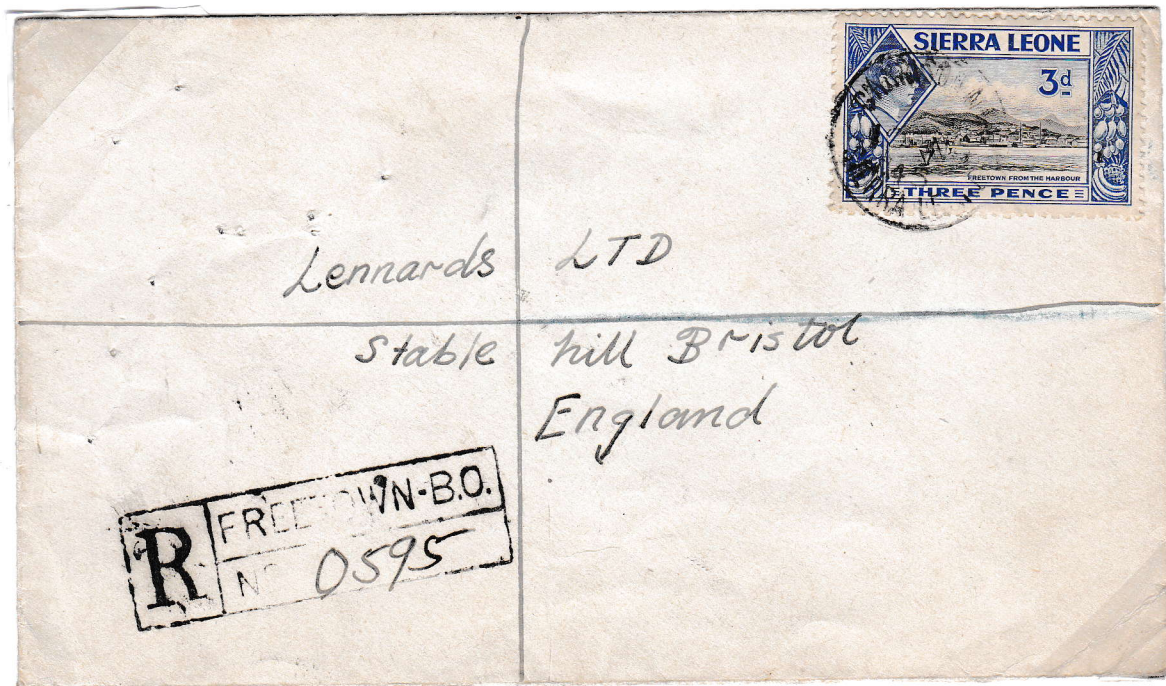 SIERRA LEONE
3d
FREETOWN FROM THE HARBOUR
THREE PENCE
Lennards LTD
Stable hill Bristol
England
R
FREETOWN-B.O.
No 0595